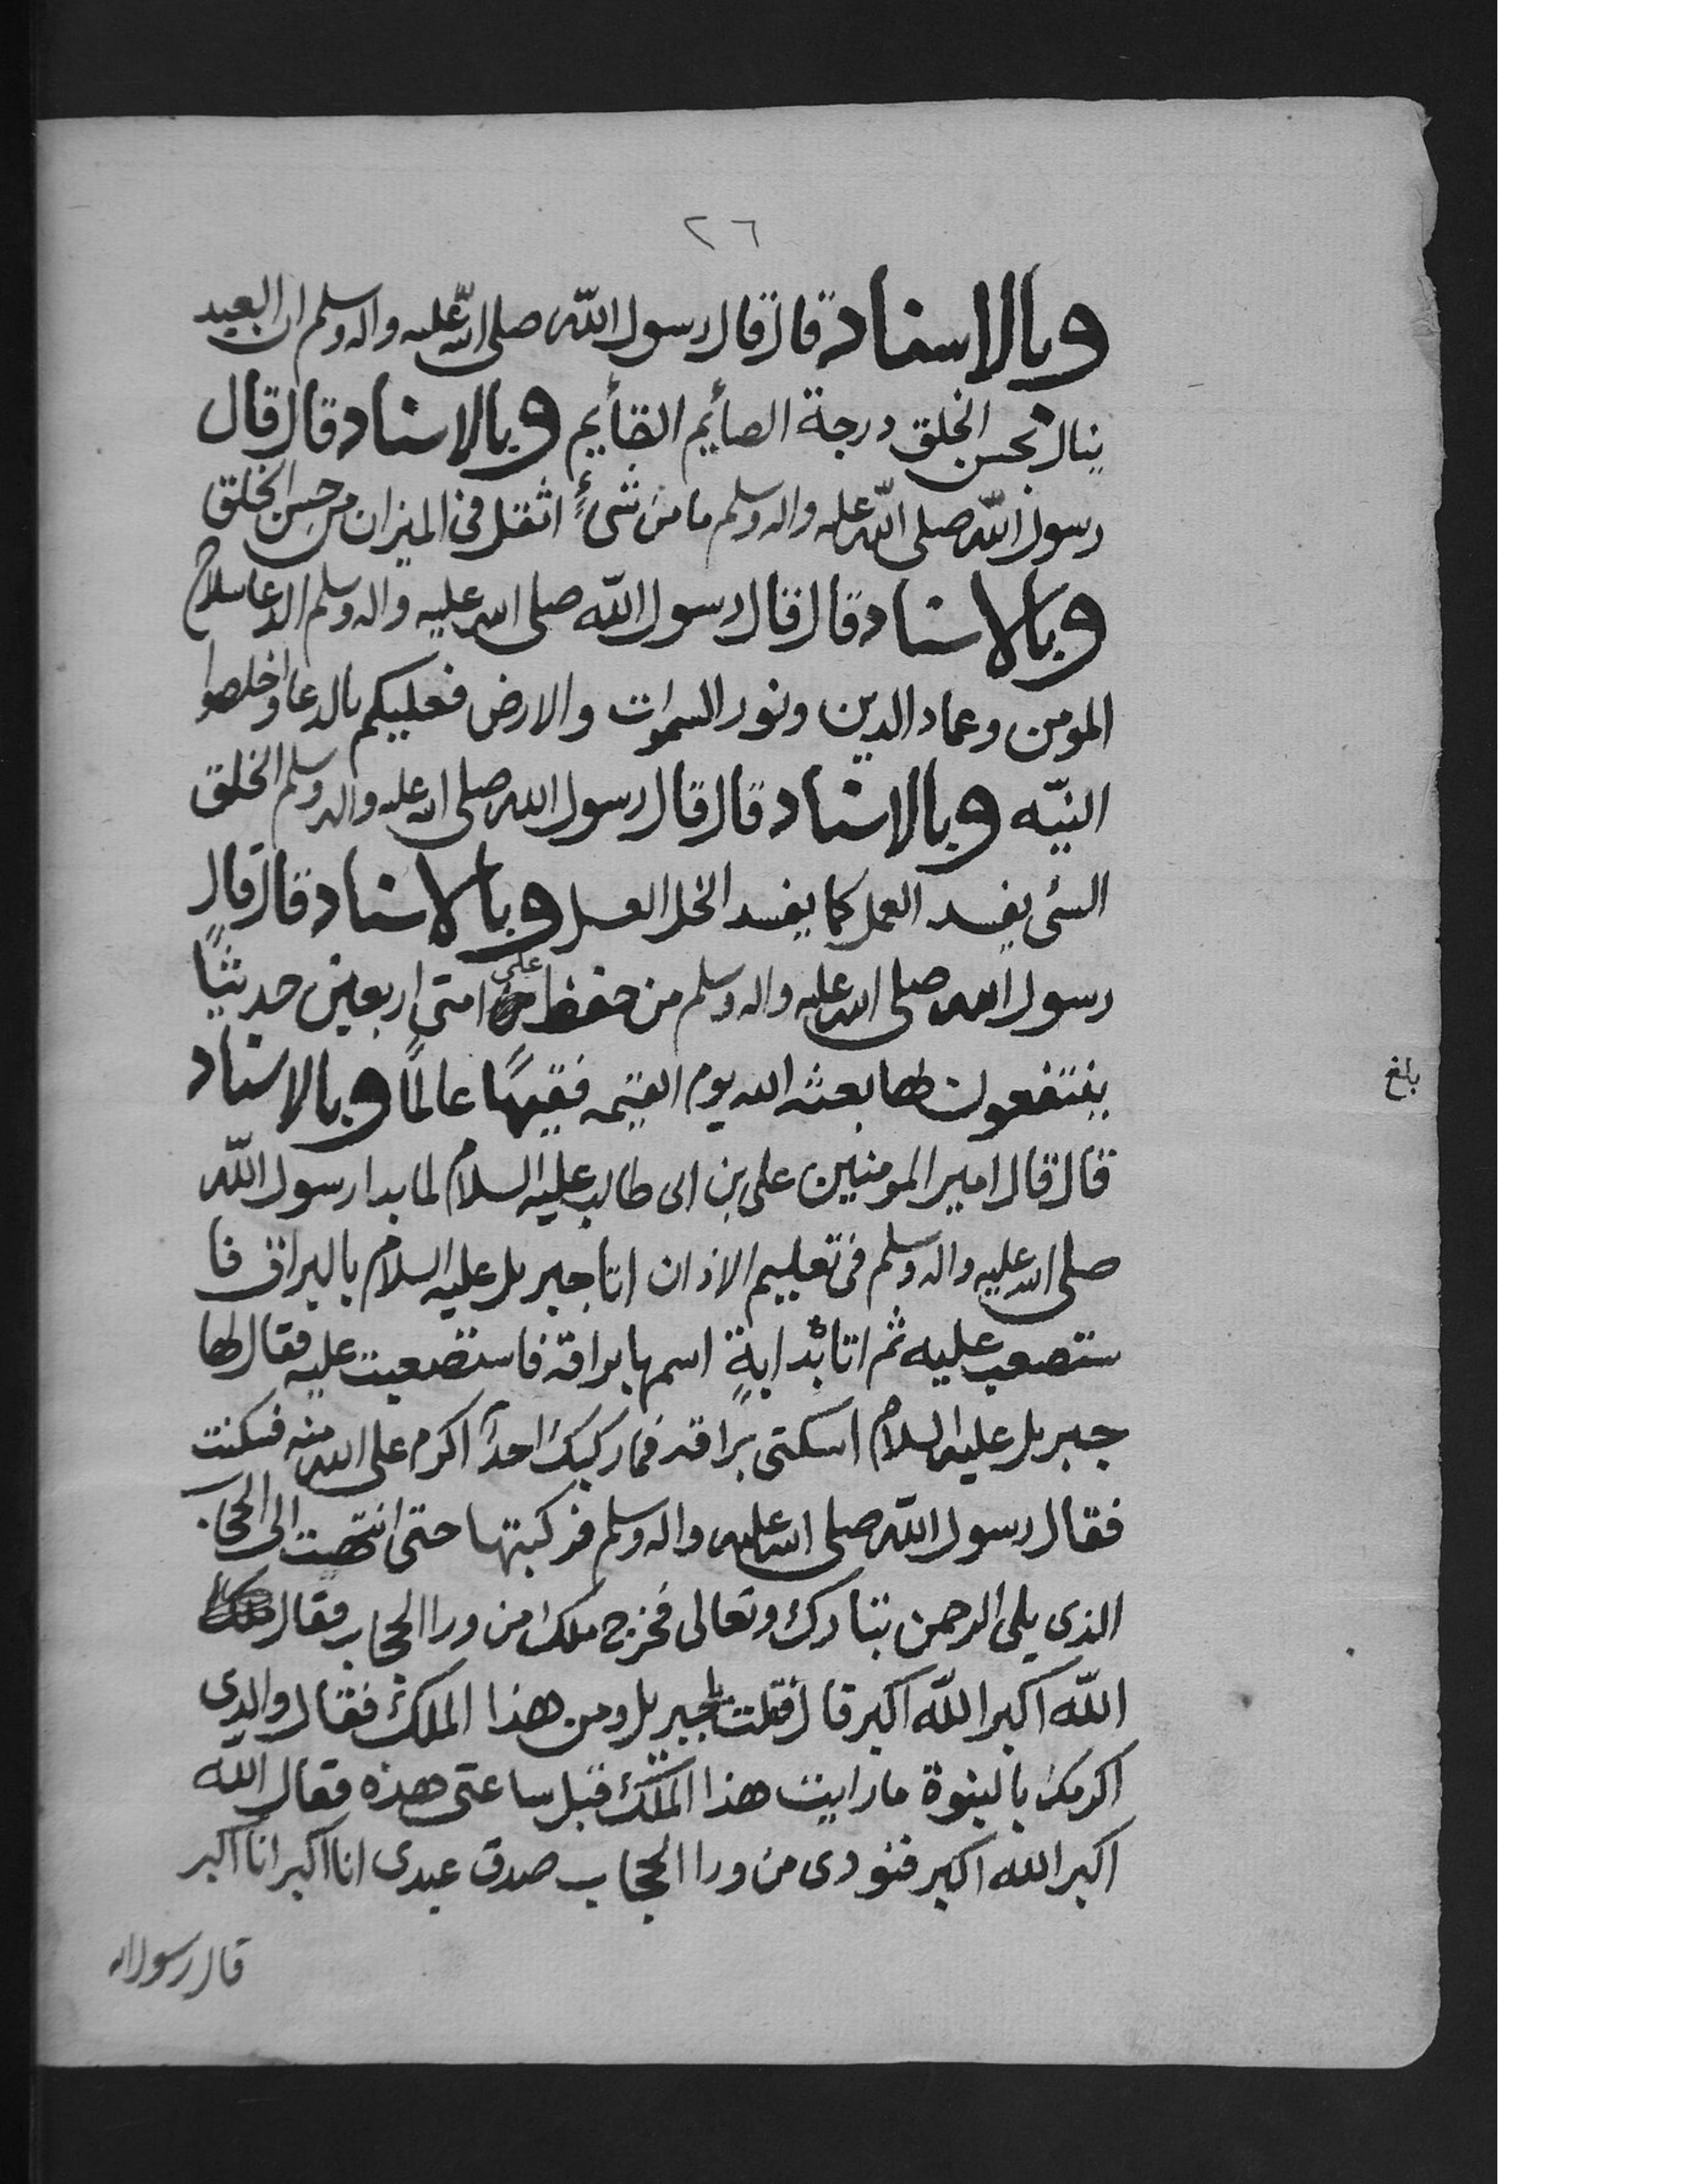 ٢٦
وبالاسناد قال قال رسول الله صلى الله عليه واله وسلم ان العبد
ينال بحسن الخلق درجة الصأيم القأيم وبالاسناد قال قال
رسول الله صلى الله عليه واله وسلم ما من شئ اثقل في الميزان من حسن الخلق
وبالاسناد قال قال رسول الله صلى الله عليه واله وسلم الدعا سلاح
المومن وعماد الدين ونور السموات والارض فعليكم بالدعا واخلصوا
النيّه وبالاسناد قال قال رسول الله صلى الله عليه واله وسلم الخلق
السئ يفسد العمل كما يفسد الخل العسل وبالاسناد قال قال
رسول الله صلى الله عليه واله وسلم من حفظ على امتي اربعين حديثًا
ينتفعون بها بعثه الله يوم القيمه فقيهًا عالمًا وبالاسناد
بلغ
قال قال امير المومنين علي بن ابى طالب عليه السلام لما بدا رسول الله
صلى الله عليه واله وسلم في تعليم الاذان اتا جبريل عليه السلام بالبراق فا
ستصعب عليه ثم اتا بدابةٍ اسمها براقة فاستصعبت عليه فقال لها
جبريل عليه السلام اسكتى براقه فما ركبك احدًا اكرم على الله منه فسكنت
فقال رسول الله صلى الله عليه واله وسلم فركبتها حتى انتهت الى الحجاب
الذى يلى الرحمن تبارك وتعالى فخرج ملك من ورا الحجاب فقال
الله اكبر الله اكبر قال قلت لجبريل ومن هذا الملك فقال والذى
اكرمك بالنبوة ما رايت هذا الملك قبل ساعتى هذه فقال الله
اكبر الله اكبر فنودى من ورا الحجاب صدق عبدى انا اكبر انا اكبر
قال رسول الله